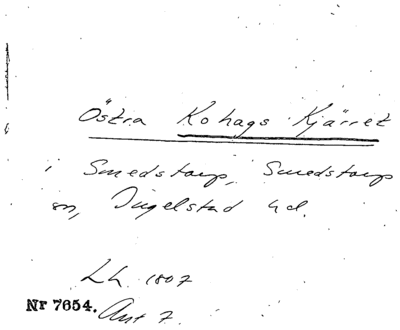 Östra Kohags Kjärret
i Smedstorp, Smedstorps
sn, Ingelstad hd.
Lh. 1807
Nr 7654. Akt 7.